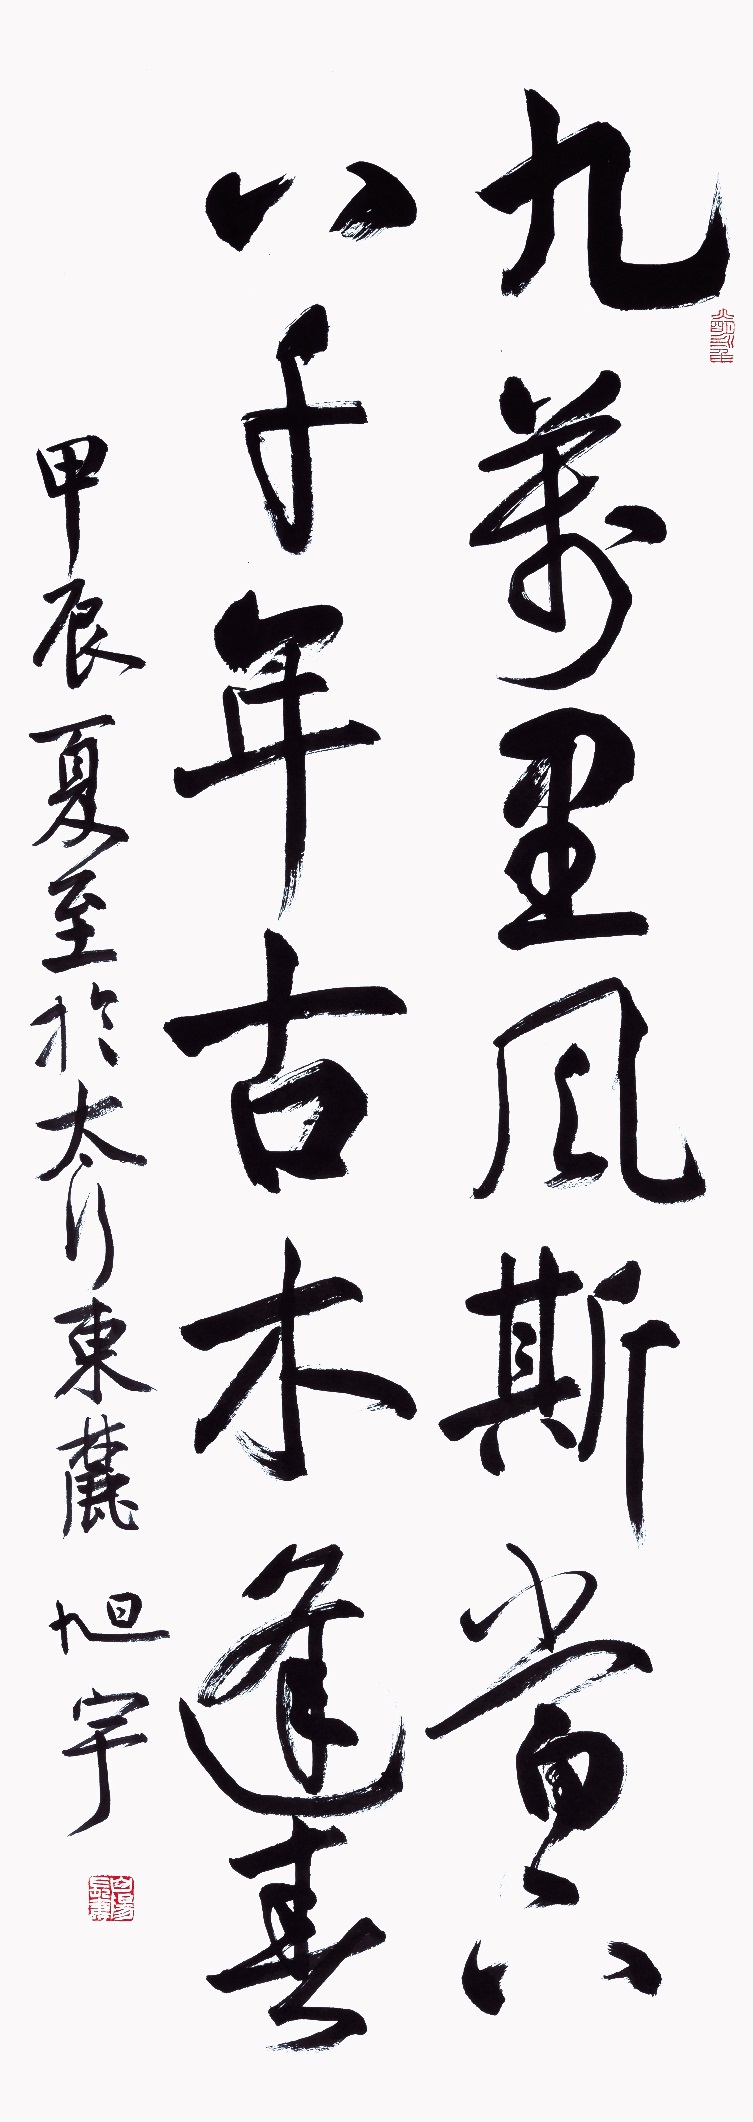 九萬里风斯當六
八千年古木逢春
甲辰夏至於太行東麓 旭宇